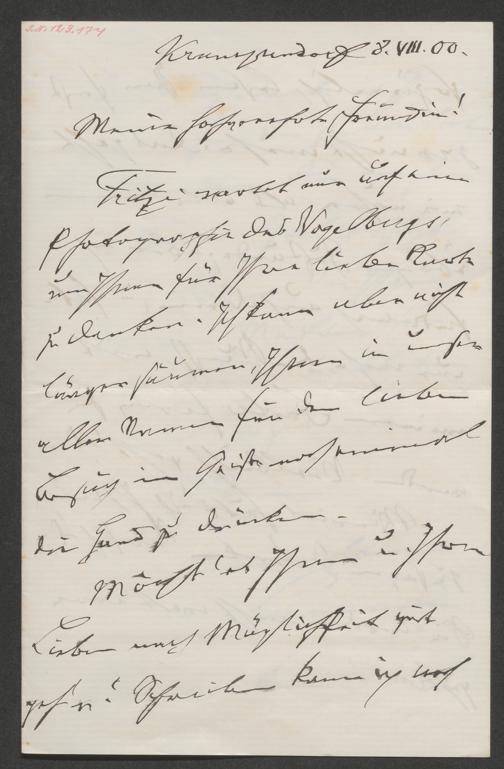 I.N. 123.174
Krumpendorf 8. VIII. 00.
Meine hochverehrte Freundin!
Fritzi wartet nur auf eine
Photographie des Vogelbergs,
um Ihnen für Ihre liebe Karte
zu danken. Ich kann aber nicht
länger säumen, Ihnen in unser
aller Namen für den lieben
Besuch im Geiste noch einmal
die Hand zu drücken.
Möcht' es Ihnen u. Ihren
Lieben nach Möglichkeit gut
geh'n! Schreiben kann ich noch